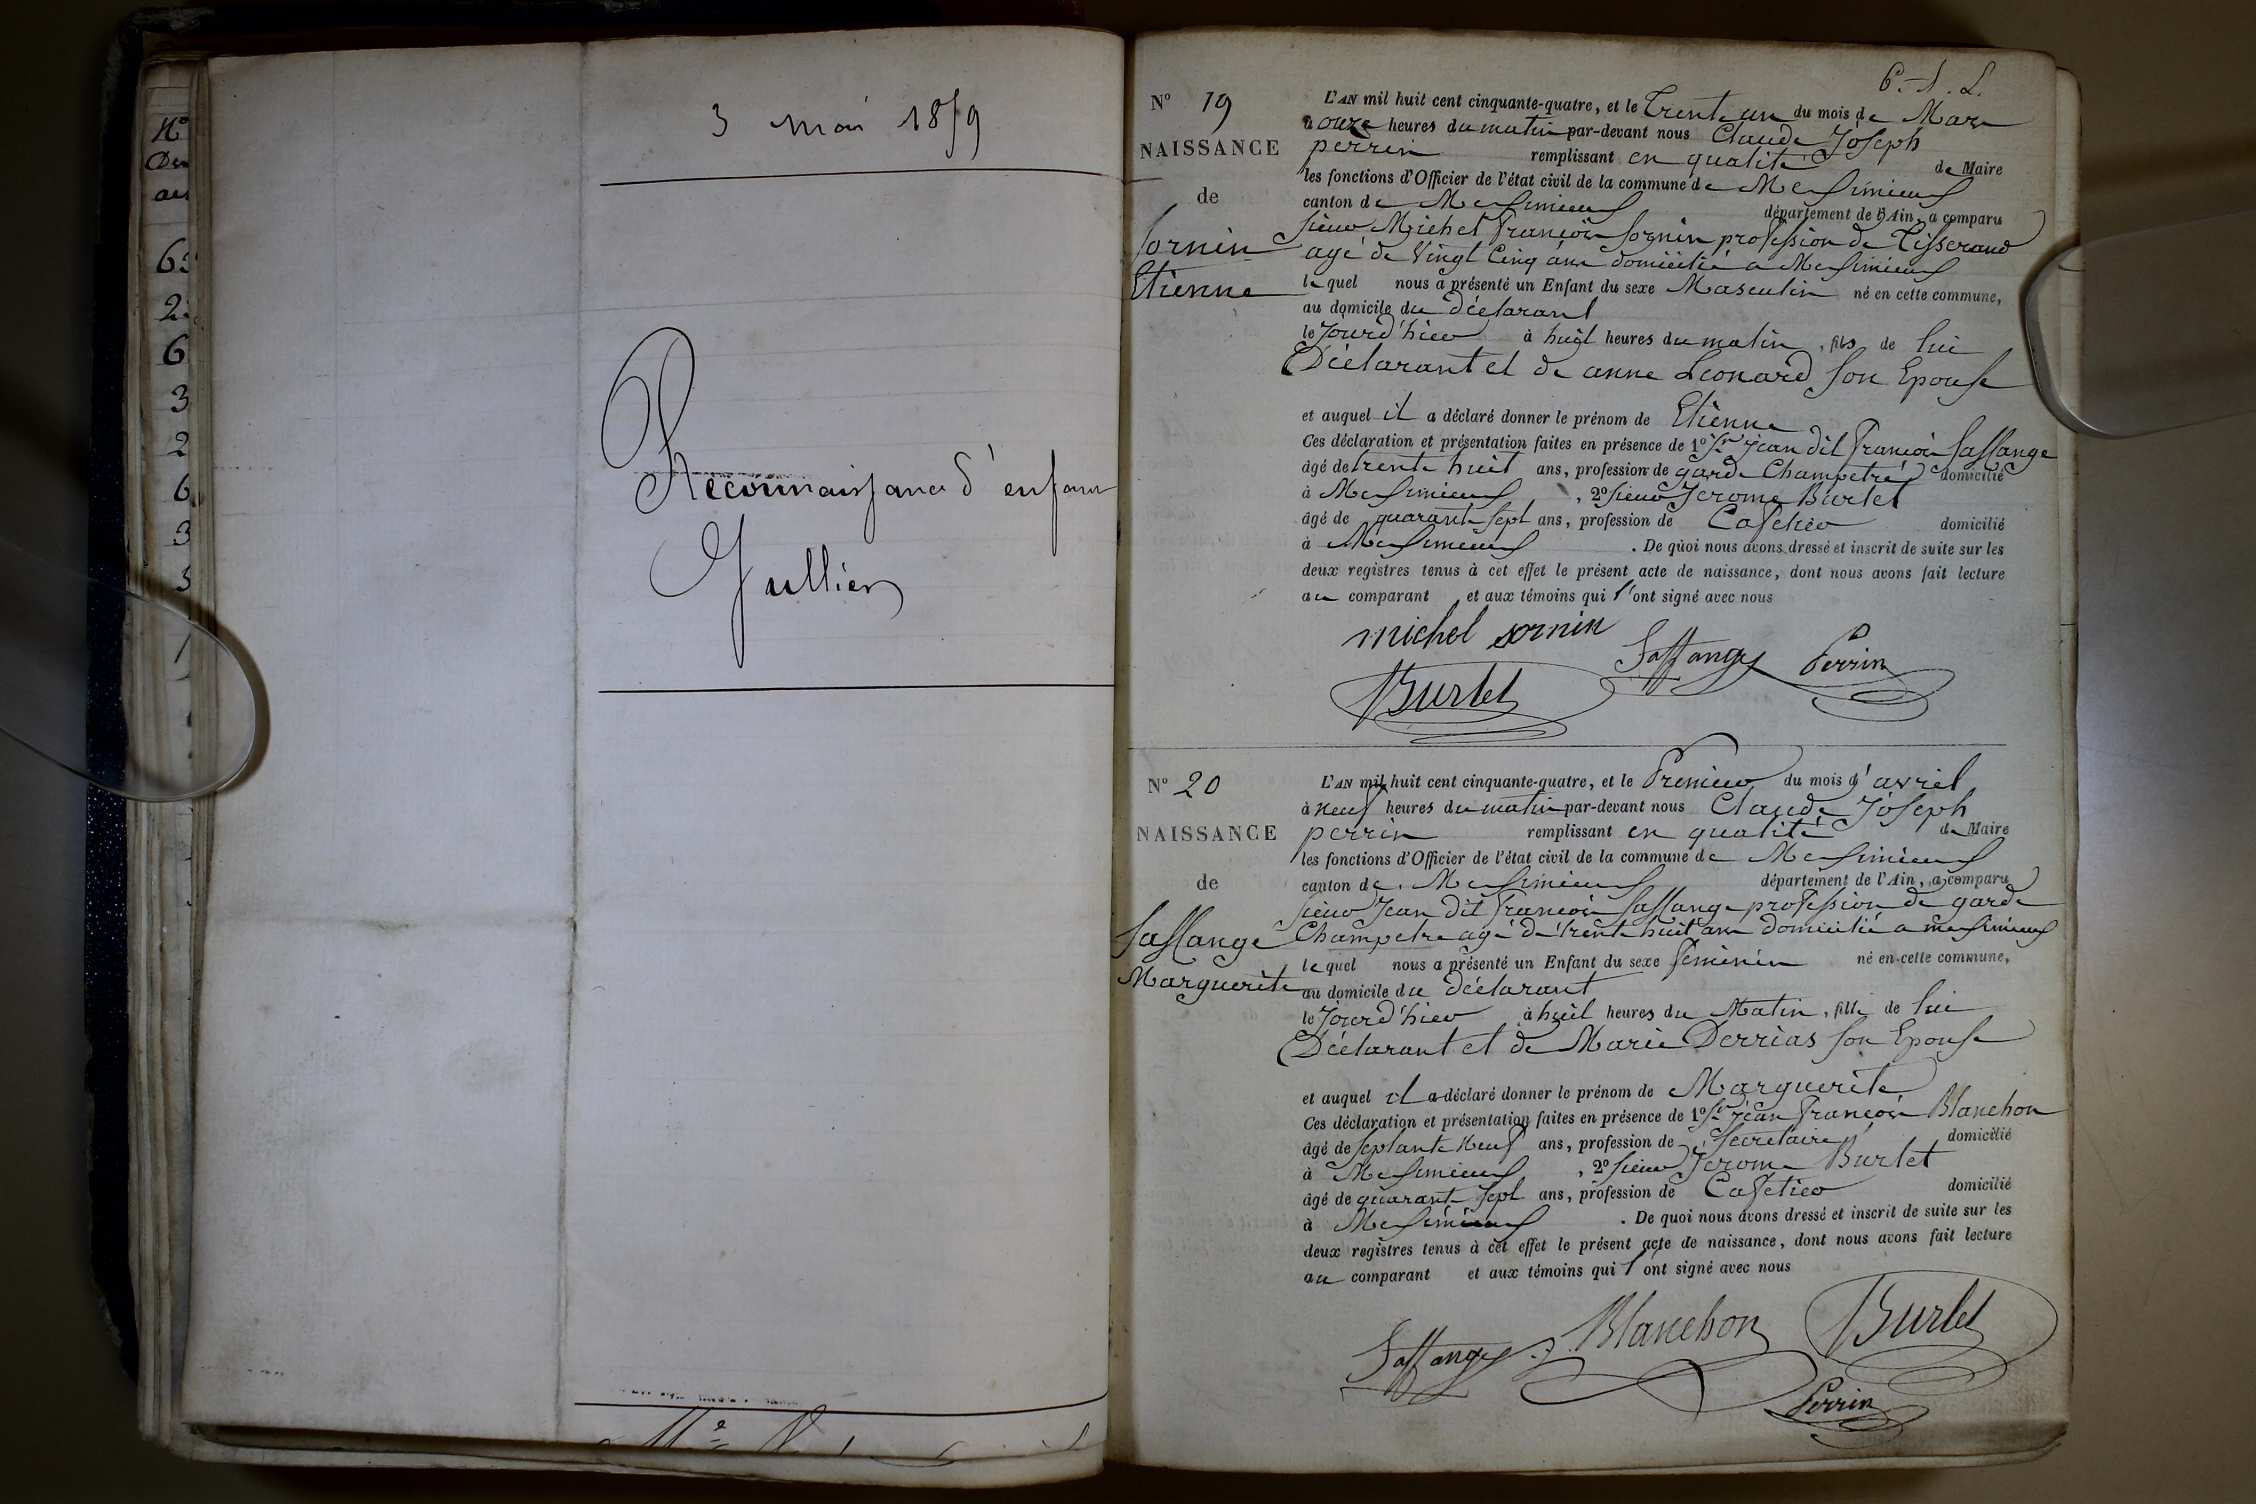 3 mai 1859
Reconnaissance d'enfant
Jullien
Nº
6
3
2
6
3
3
6. A. L.
Nº 19
NAISSANCE
de
Sornin
Etienne
L'AN mil huit cent cinquante-quatre, et le Trente un du mois de Mars
à onze heures du matin par-devant nous Claude Joseph
perrin remplissant en qualité de Maire
les fonctions d'Officier de l'état civil de la commune de Messimieux
canton de Messimieux département de l'Ain, a comparu
sieur Michel François Sornin profession de Tisserand
agé de Vingt Cinq ans domicilié a Messimieux
lequel nous a présenté un Enfant du sexe Masculin né en cette commune,
au domicile du Déclarant
le Jourd'hier à huit heures du matin, fils de lui
Déclarant et de anne Leonard son Epouse
et auquel il a déclaré donner le prénom de Etienne
Ces déclaration et présentation faites en présence de 1º Sr Jean dit François Saffange
âgé de trente huit ans, profession de garde Champetre domicilié
à Messimieux, 2º sieur Jerome Burlet
âgé de quarante sept ans, profession de Cafetier domicilié
à Messimieux. De quoi nous avons dressé et inscrit de suite sur les
deux registres tenus à cet effet le présent acte de naissance, dont nous avons fait lecture
au comparant et aux témoins qui l'ont signé avec nous
michel sornin
Saffange Perrin
Burlet
Nº 20
NAISSANCE
de
Saffange
Marguerite
L'AN mil huit cent cinquante-quatre, et le Premier du mois d'avril
à Neuf heures du matin par-devant nous Claude Joseph
perrin remplissant en qualité de Maire
les fonctions d'Officier de l'état civil de la commune de Messimieux
canton de Messimieux département de l'Ain, a comparu
sieur Jean dit François Saffange profession de garde
Champetre agé de trente huit ans domicilié a messimieux
lequel nous a présenté un Enfant du sexe feminin né en cette commune,
au domicile du Déclarant
le Jourd'hier à huit heures du Matin, fille de lui
Déclarant et de Marie Derrias son Epouse
et auquel il a déclaré donner le prénom de Marguerite
Ces déclaration et présentation faites en présence de 1º Sr Jean François Blanchon
âgé de septante Neuf ans, profession de Secretaire domicilié
à Messimieux, 2º sieur Jerome Burlet
âgé de quarante sept ans, profession de Cafetier domicilié
à Messimieux. De quoi nous avons dressé et inscrit de suite sur les
deux registres tenus à cet effet le présent acte de naissance, dont nous avons fait lecture
au comparant et aux témoins qui l'ont signé avec nous
Saffange Blanchon Burlet
Perrin